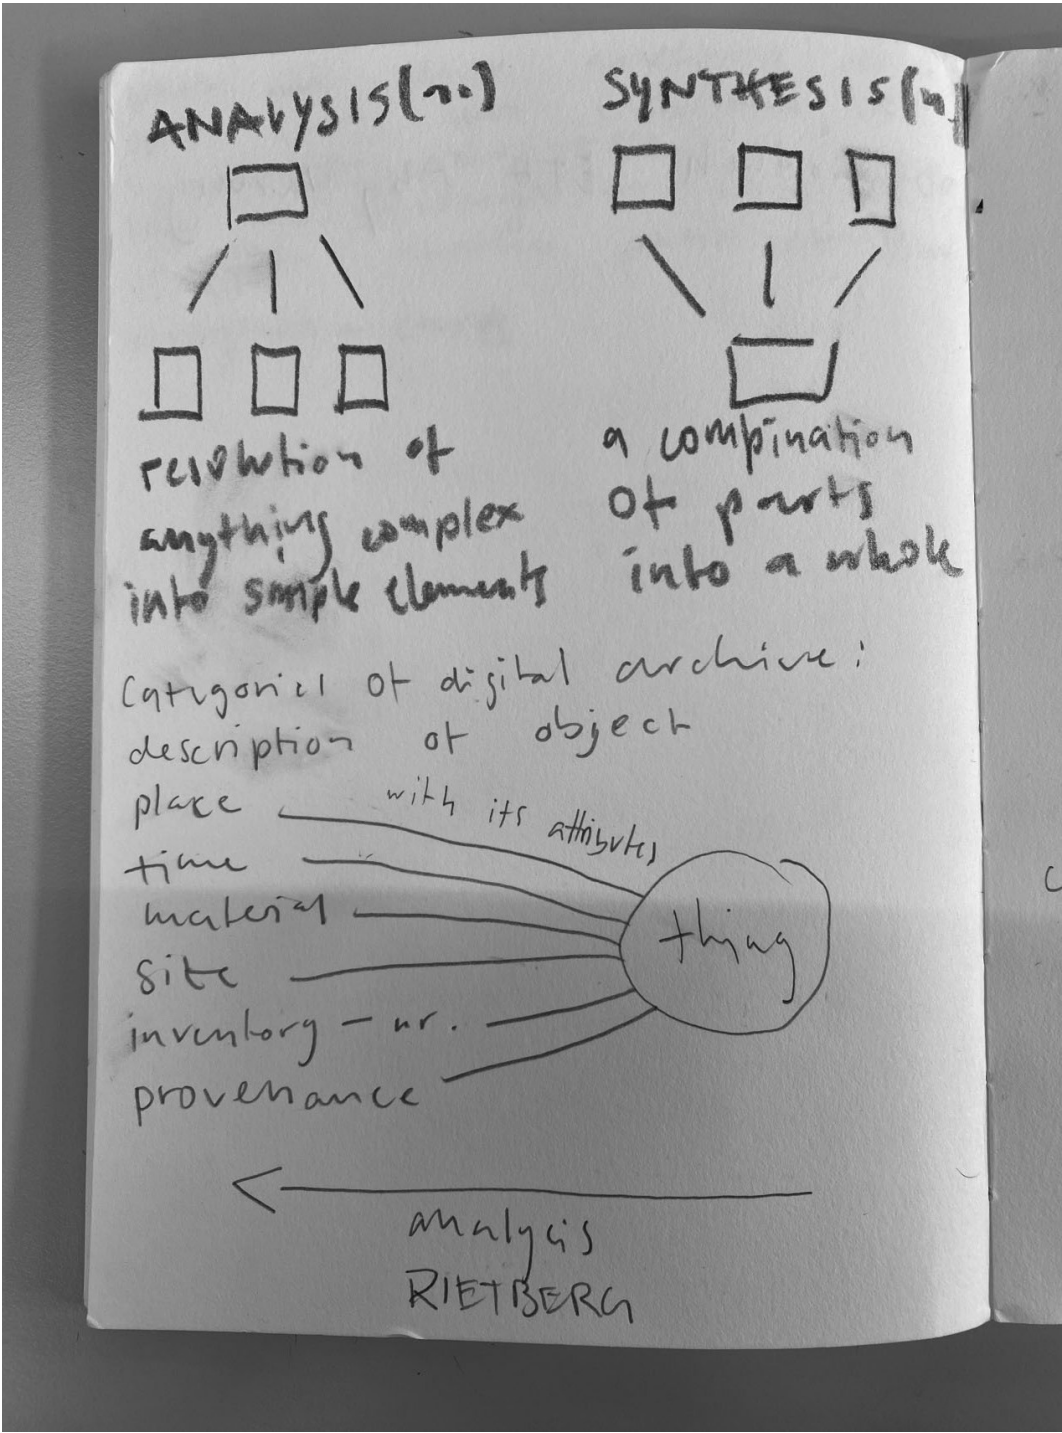 ANALYSIS (n.)
SYNTHESIS (n.
resolution of
anything complex
into simple elements
a compination
of parts
into a whole
Categories of digital archive:
description of object
place
with its attributes
time
material
thing
site
inventory - nr.
provenance
analysis
RIETBERG